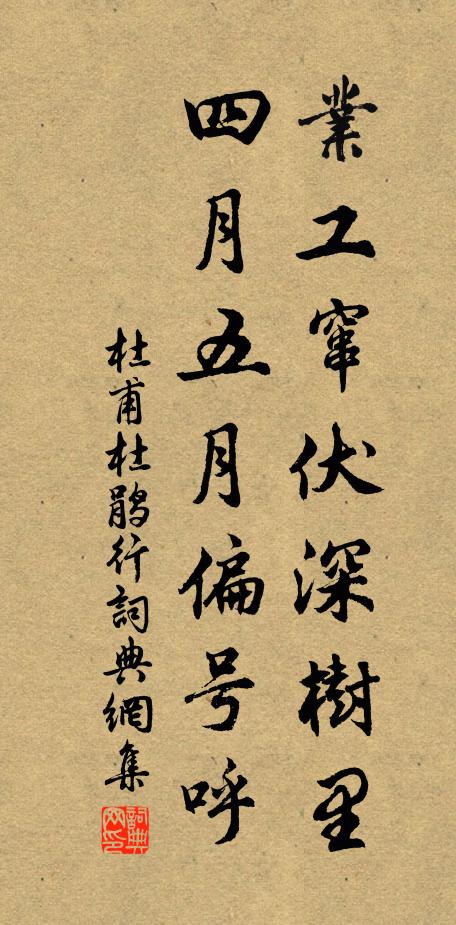 業工窜伏深樹里
四月五月偏号呼
杜甫杜鵑行詞典網集
詞典网印